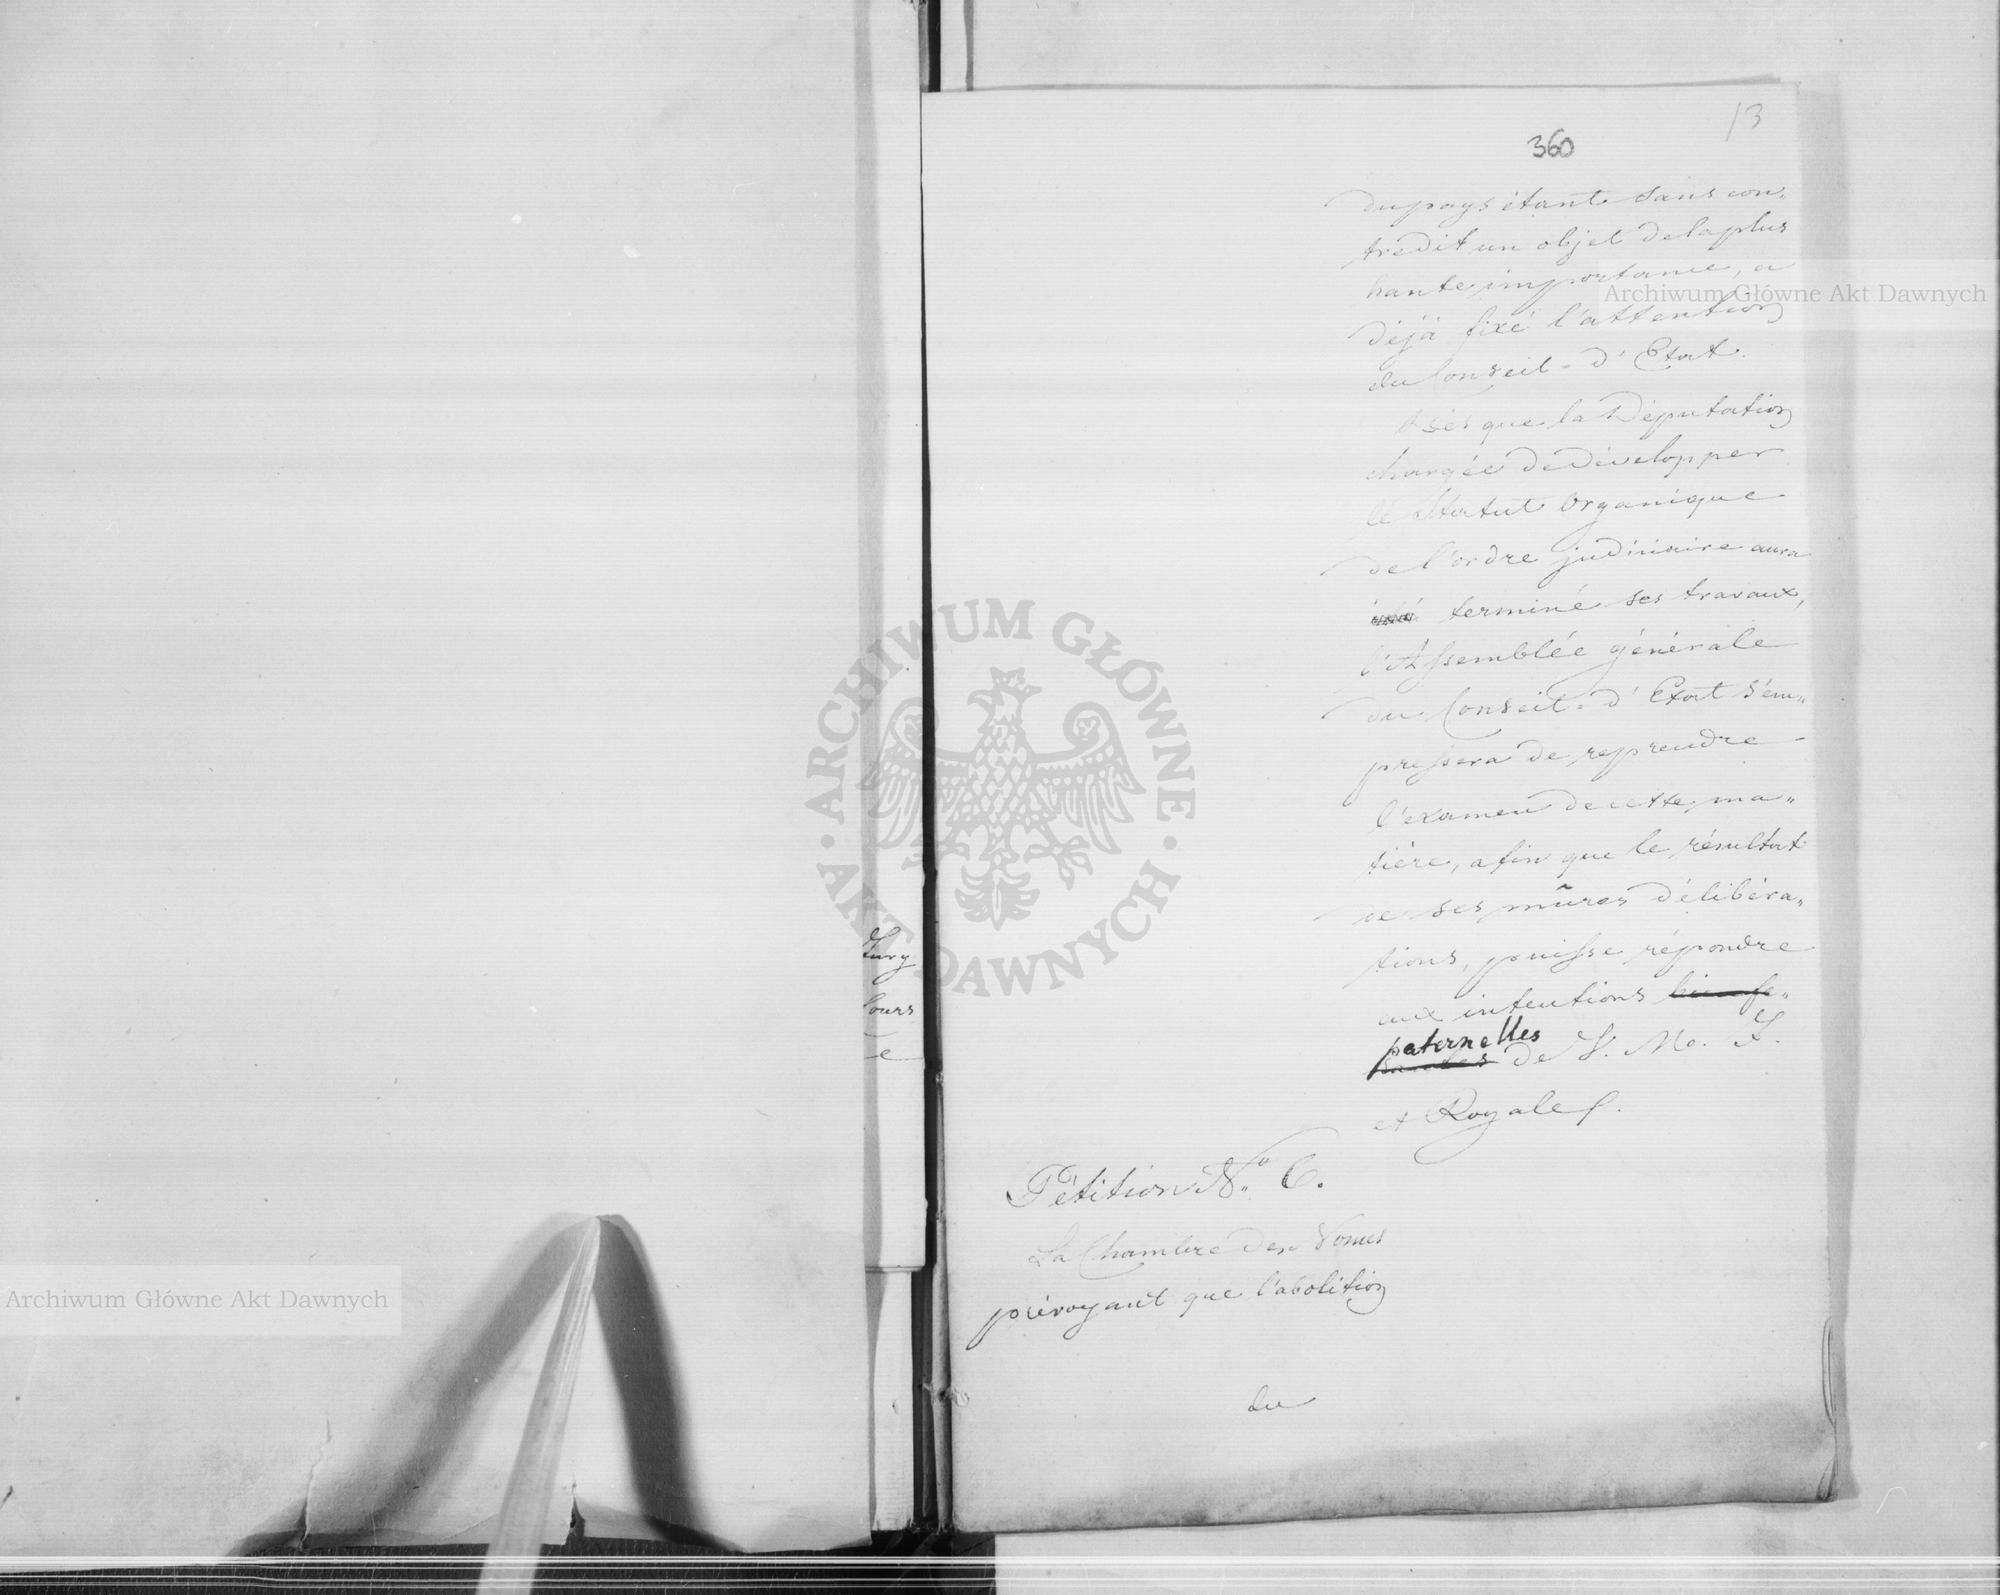 13
360
du pays étant sans con„
tredit un objet de la plus
haute importance, a
déjà fixé l'attention
du Conseil-d'Etat.
Dès que la Députation
chargée de développer
le Statut Organique
de l'ordre judiciaire aura
terminé ses travaux,
l'Assemblée générale
du Conseil-d'Etat s'em„
pressera de reprendre
l'examen de cette ma„
tière, afin que le résultat
de ses mûres délibéra„
tions, puisse répondre
aux intentions
paternelles
de S. M. I.
et Royale.
Pétition N° 6.
La Chambre des Nonces
prévoyant que l'abolition
du
Jury
lours
e
Archiwum Główne Akt Dawnych
Archiwum Główne Akt Dawnych
ARCHIWUM GŁÓWNE · AKT DAWNYCH ·